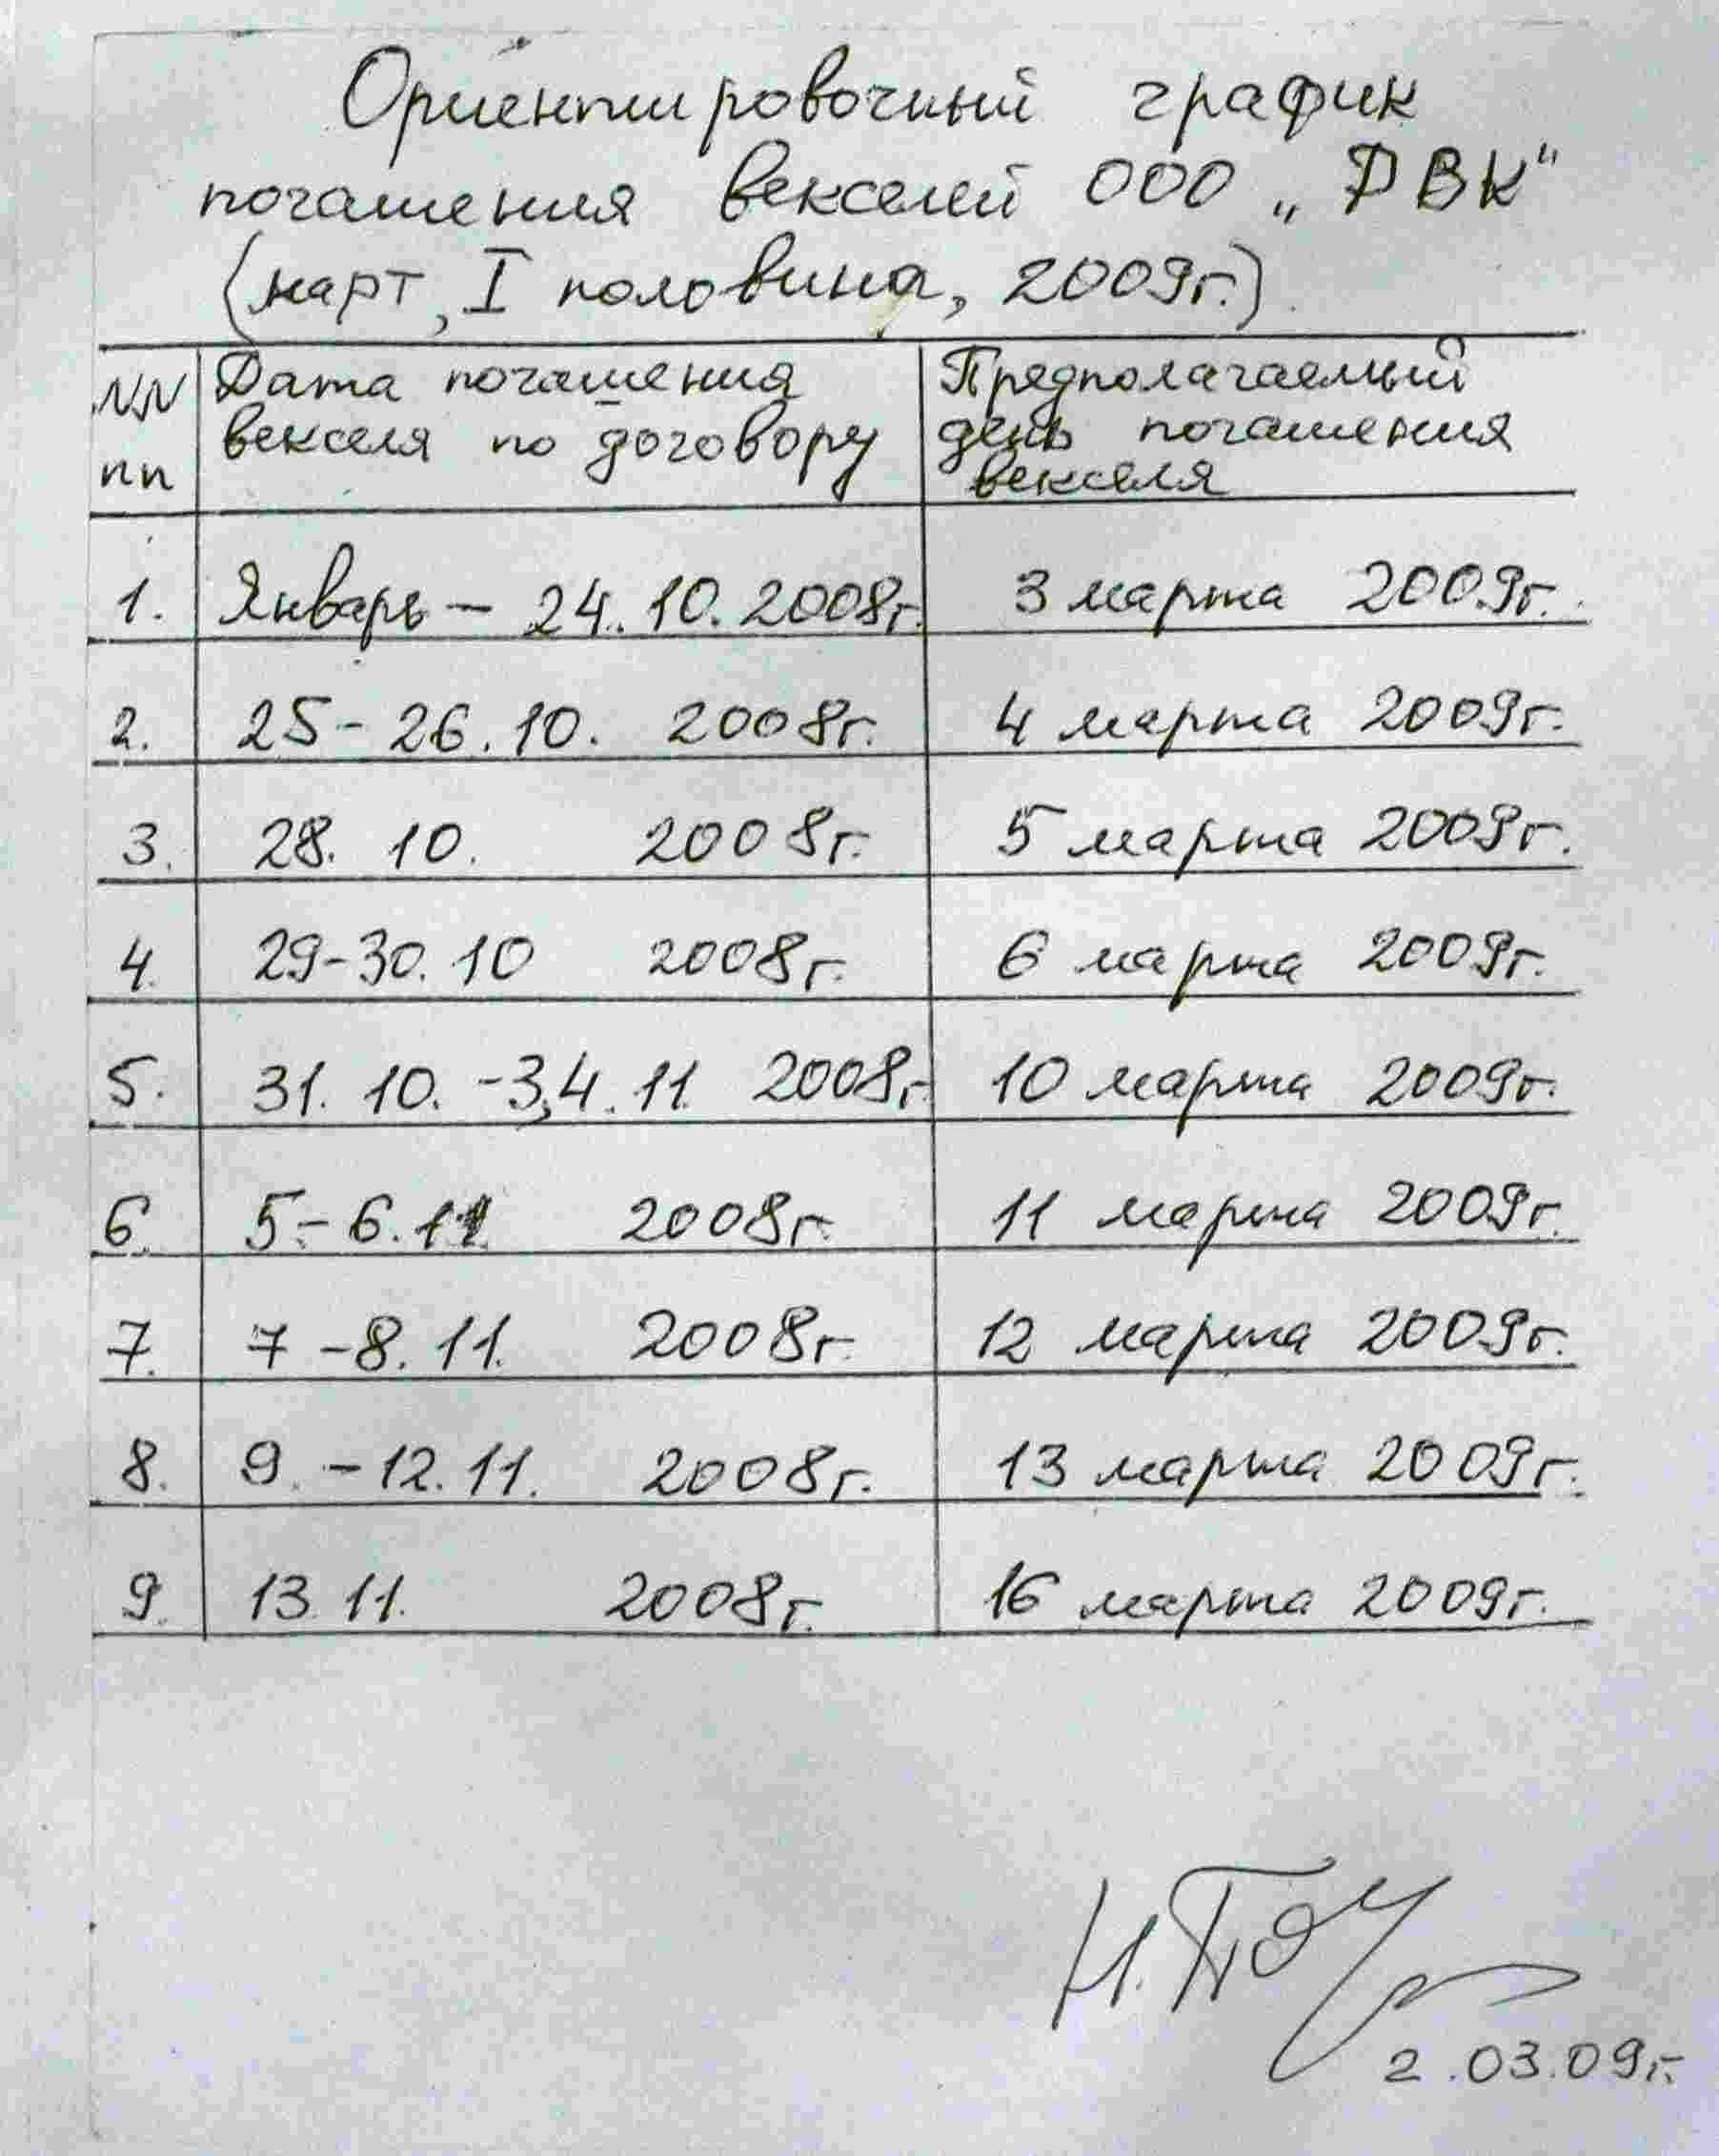 Ориентировочный график
погашения векселей ООО „ДВК"
(март, I половина, 2009г.)
NN пп
Дата погашения
векселя по договору
Предполагаемый
день погашения
векселя
1. Январь – 24.10.2008г. 3 марта 2009г.
2. 25-26.10. 2008г. 4 марта 2009г.
3. 28. 10. 2008г. 5 марта 2009г.
4. 29-30.10 2008г. 6 марта 2009г.
5. 31.10.-3,4.11. 2008г. 10 марта 2009г.
6. 5-6.11 2008г. 11 марта 2009г.
7. 7-8.11. 2008г. 12 марта 2009г.
8. 9.-12.11. 2008г. 13 марта 2009г.
9. 13 11. 2008г. 16 марта 2009г.
2.03.09г.